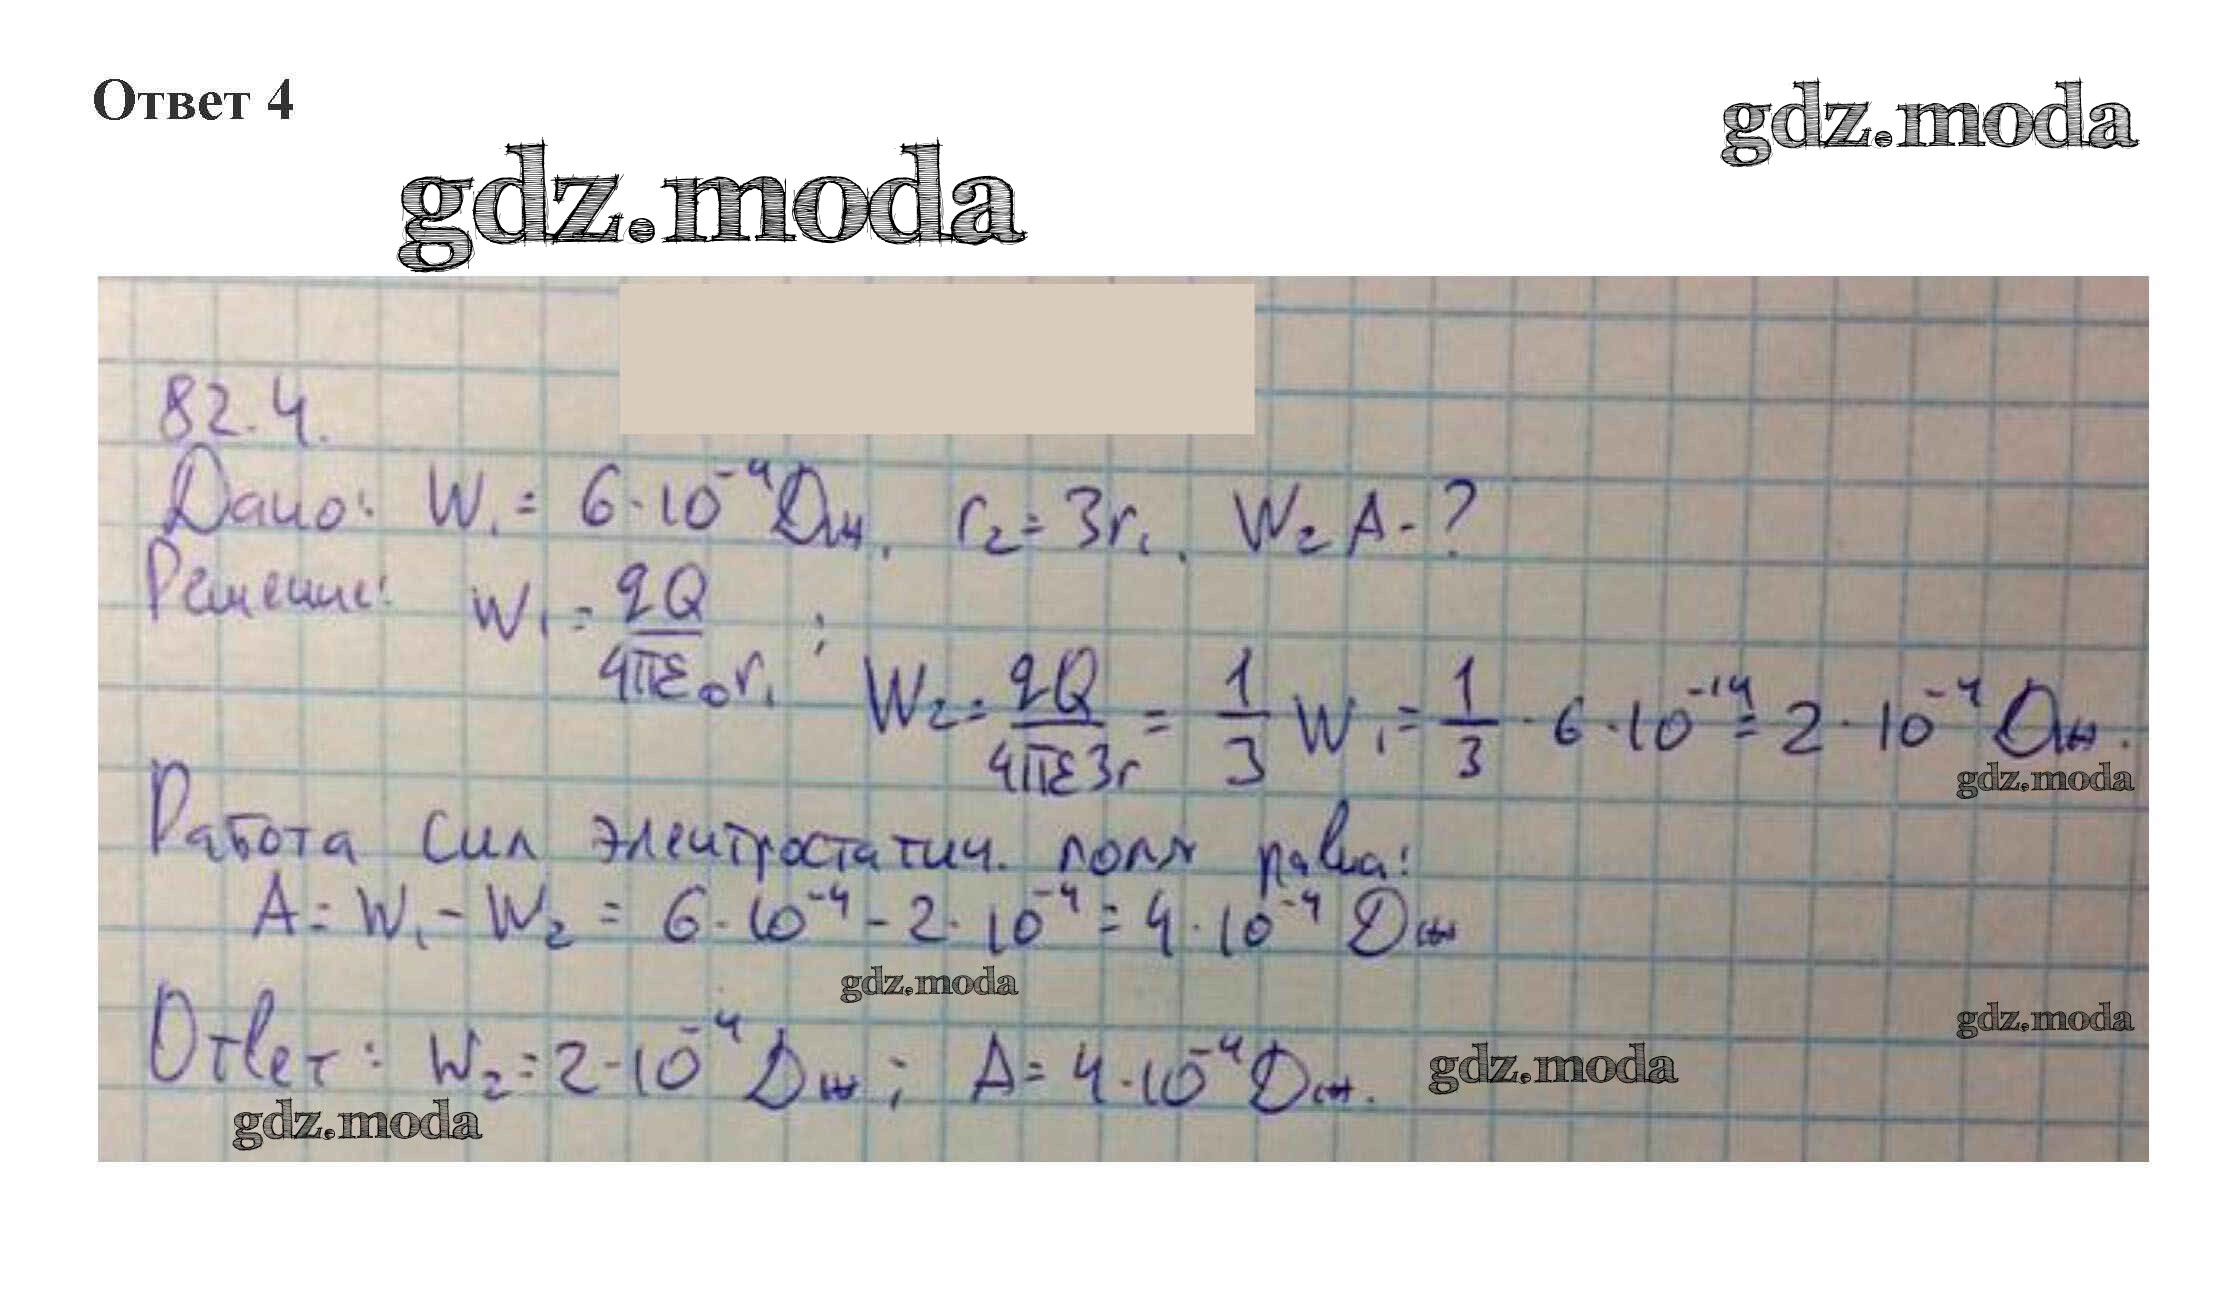 Ответ 4
gdz.moda
gdz.moda
82.4.
Дано: W₁ = 6·10⁻⁴ Дж, r₂ = 3r₁. W₂ A - ?
Решение: W₁ = qQ / 4πε₀r₁ ;
W₂ = qQ / 4πε3r = 1/3 W₁ = 1/3 · 6·10⁻¹⁴ = 2·10⁻⁴ Дж.
gdz.moda
Работа сил электростатич. поля равна:
A = W₁ - W₂ = 6·10⁻⁴ - 2·10⁻⁴ = 4·10⁻⁴ Дж
gdz.moda
gdz.moda
Ответ: W₂ = 2·10⁻⁴ Дж; A = 4·10⁻⁴ Дж.
gdz.moda
gdz.moda